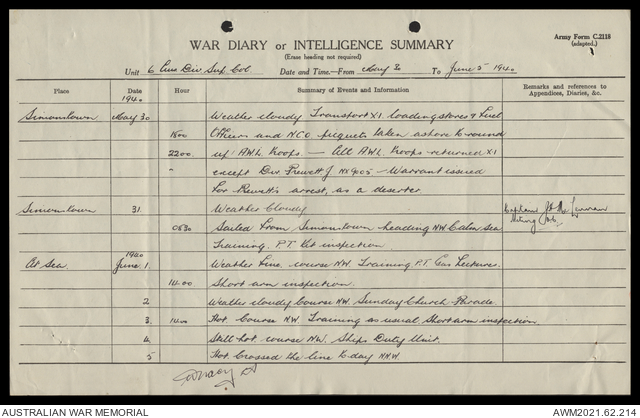 Army Form C.2118
(adapted.)
WAR DIARY or INTELLIGENCE SUMMARY
(Erase heading not required)
Unit 6 Aus Div Sup Col Date and Time—From May 30 To June 5 1940
Place Date Hour Summary of Events and Information Remarks and references to Appendices, Diaries, &c.
1940
Simonstown May 30 Weather cloudy Transport X1 loading stores & fuel
1500 Officers and NCO piquets taken ashore to round
2200. up A.W.L. troops. — All A.W.L. troops returned X1
" except Dvr. Prewett J NX9005 — Warrant issued
for Prewett's arrest, as a deserter
Simonstown 31. Weather Cloudy Captain
0530 Sailed from Simonstown heading NW Calm Sea
Training. P.T. Kit inspection
1940
At Sea. June 1. Weather fine, course NW. Training P.T. Gas Lecture.
1400 Short arm inspection.
2 Weather cloudy Course NW. Sunday Church Parade.
3. 1400 Hot. Course N.W. Training as usual, Short arm inspection.
4. Still hot. course NW. Ships Duty Unit.
5 Hot. Crossed the line to-day NNW.
AUSTRALIAN WAR MEMORIAL AWM2021.62.214